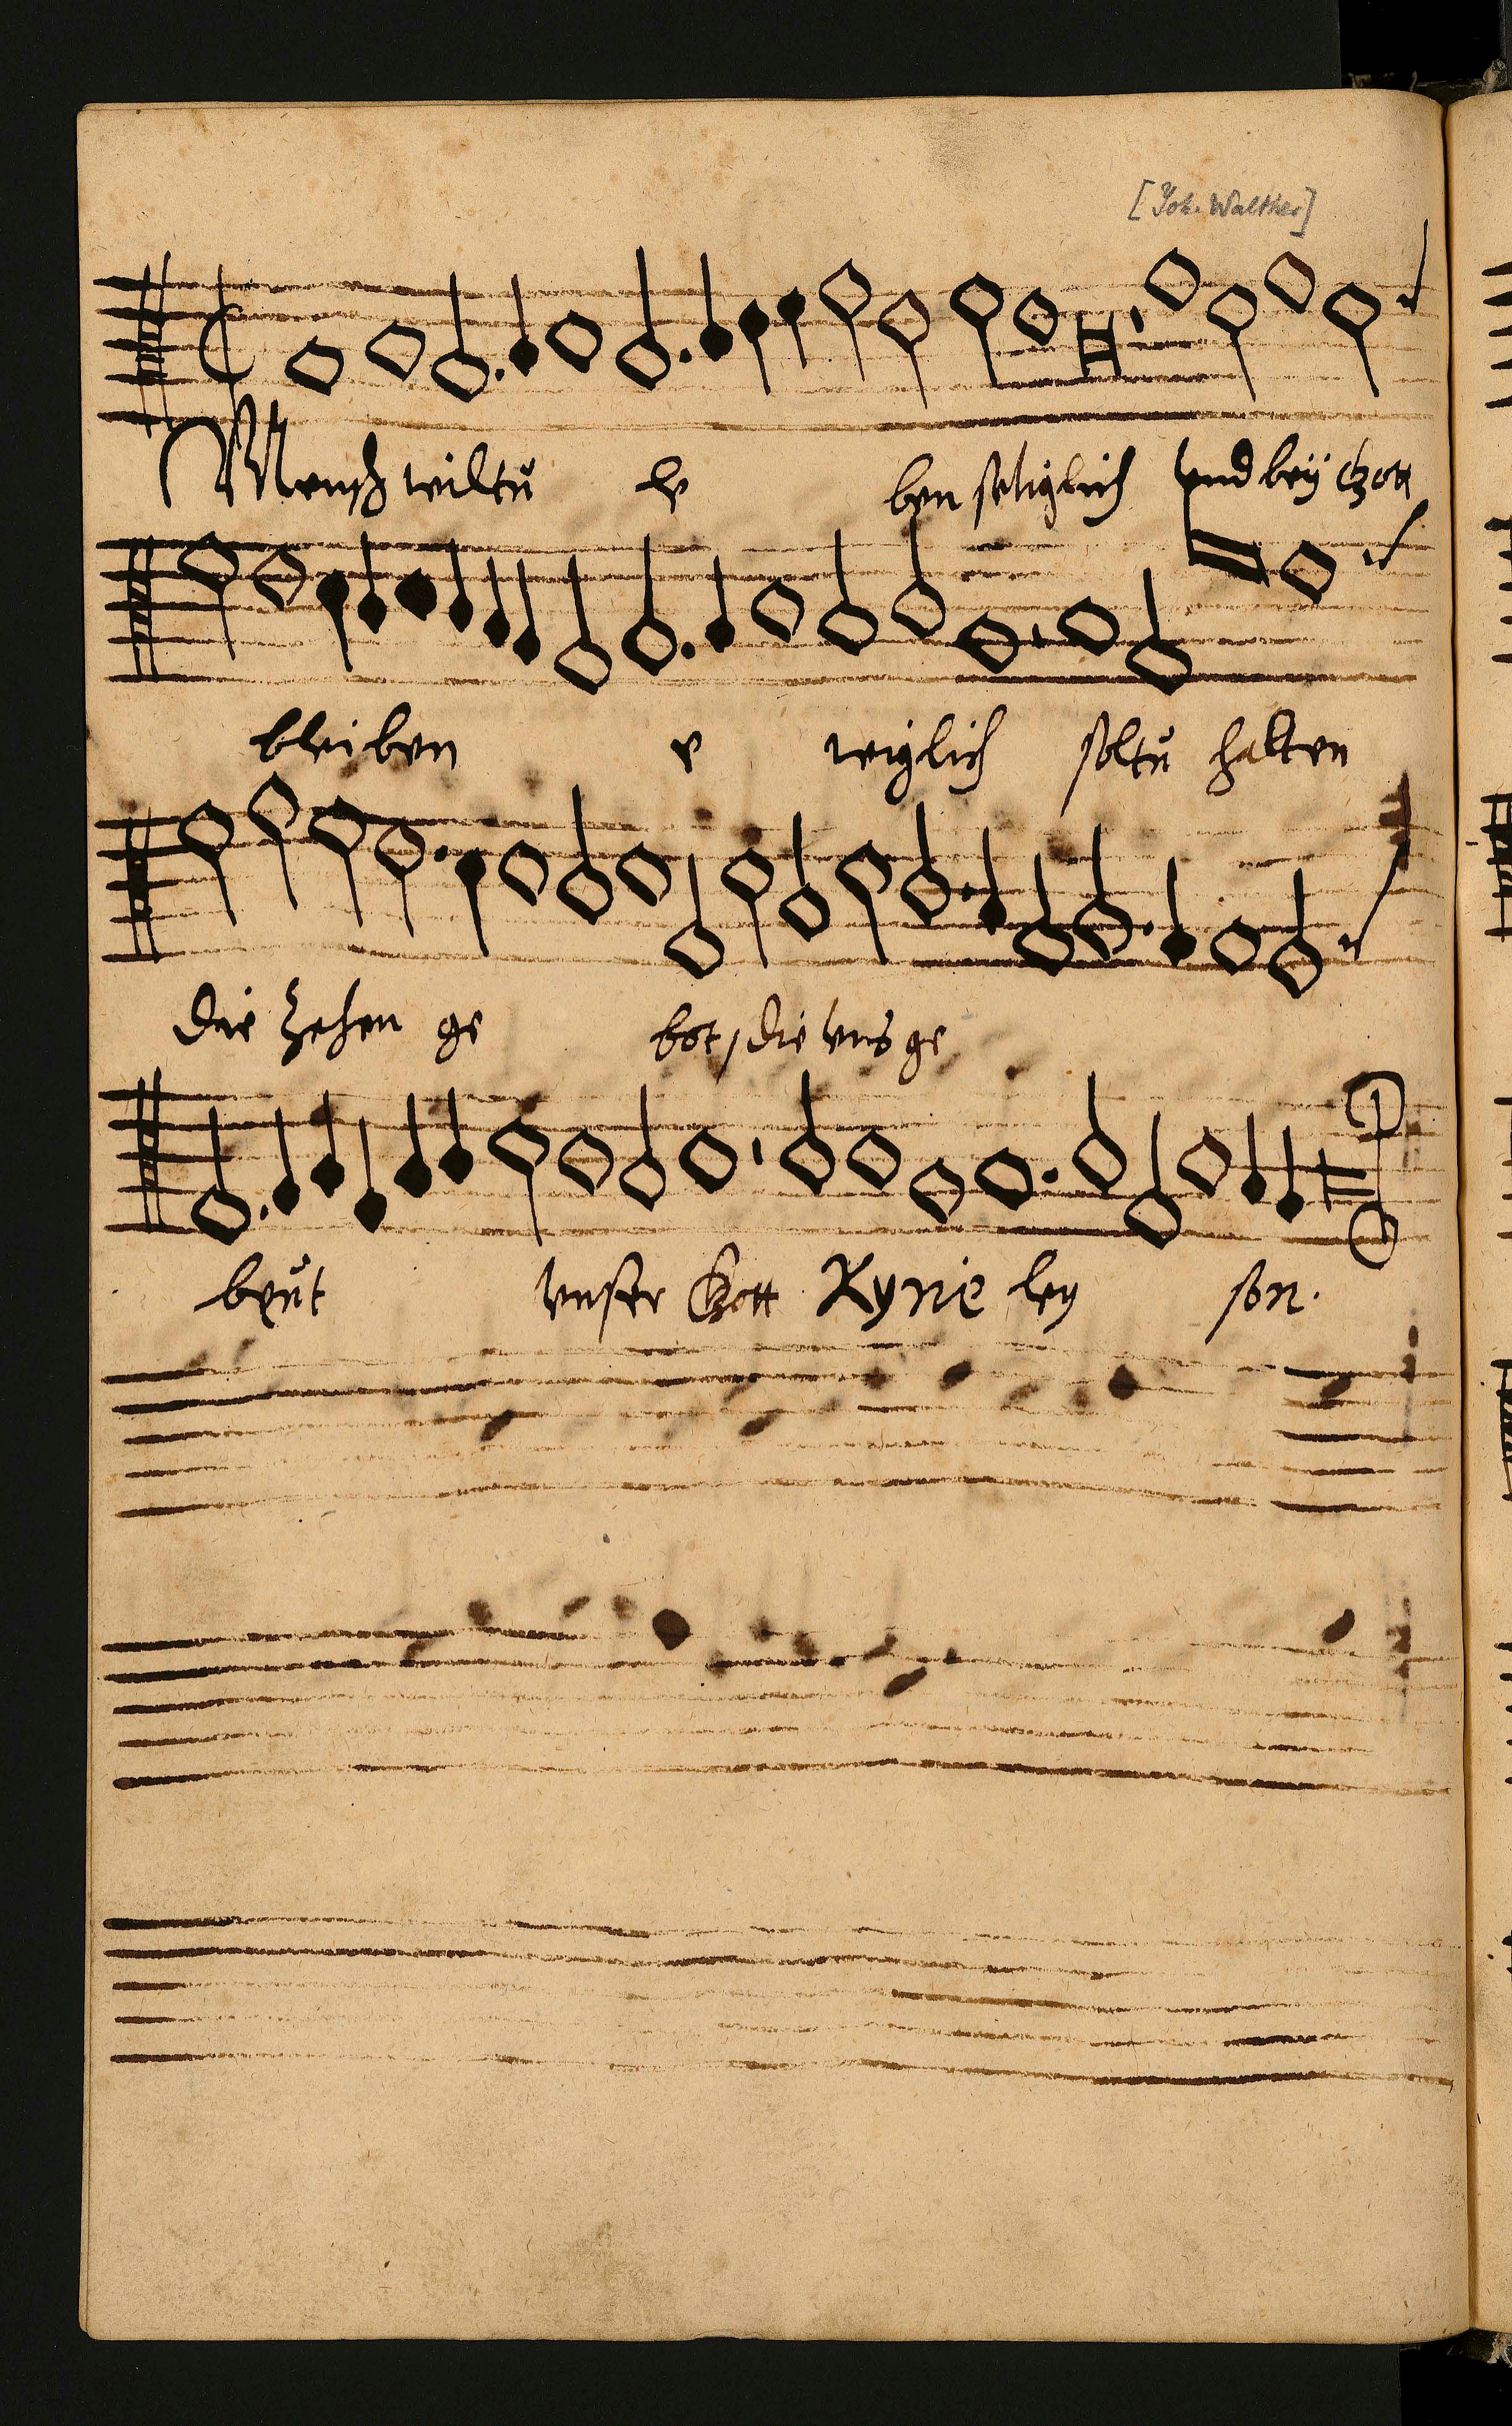 [Joh. Walther]
Mensch wiltů le ben seliglich vnd beÿ Gott
bleiben e wiglich soltů halten
die zehen ge bot / die vns ge
beůt vnser Gott Kyrie ley son.